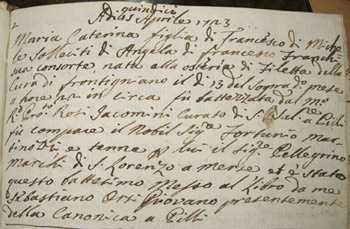 quindici
Adi 15 Aprile 1723
Maria Caterina figlia di Francesco di Miche
le Solleciti et Angela di Francesco Franchi
sua consorte nata all osteria di Filetta della
Cura di frontigniano il di 13 del soprad.o mese
a hore in circa fu battezzata dal mo
R.do Curato di S.
fu compare il Nobil Sig.re Fortunio Mar
tinozzi e tenne p lui il sig.re Pellegrino
Mariti di S. Lorenzo a merse et è stato
questo battesimo messo al libro da me
Sebastiano Orti piovano presentemente
della Canonica a Pilli